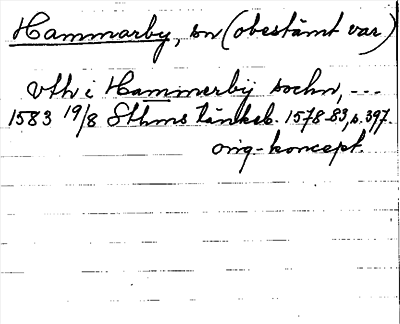 Hammarby, sn (obestämt var)
vthi Hammerbÿ sochn, ---
1583 19/8 Sthms tänkeb. 1578-83, s. 397.
orig.-koncept.